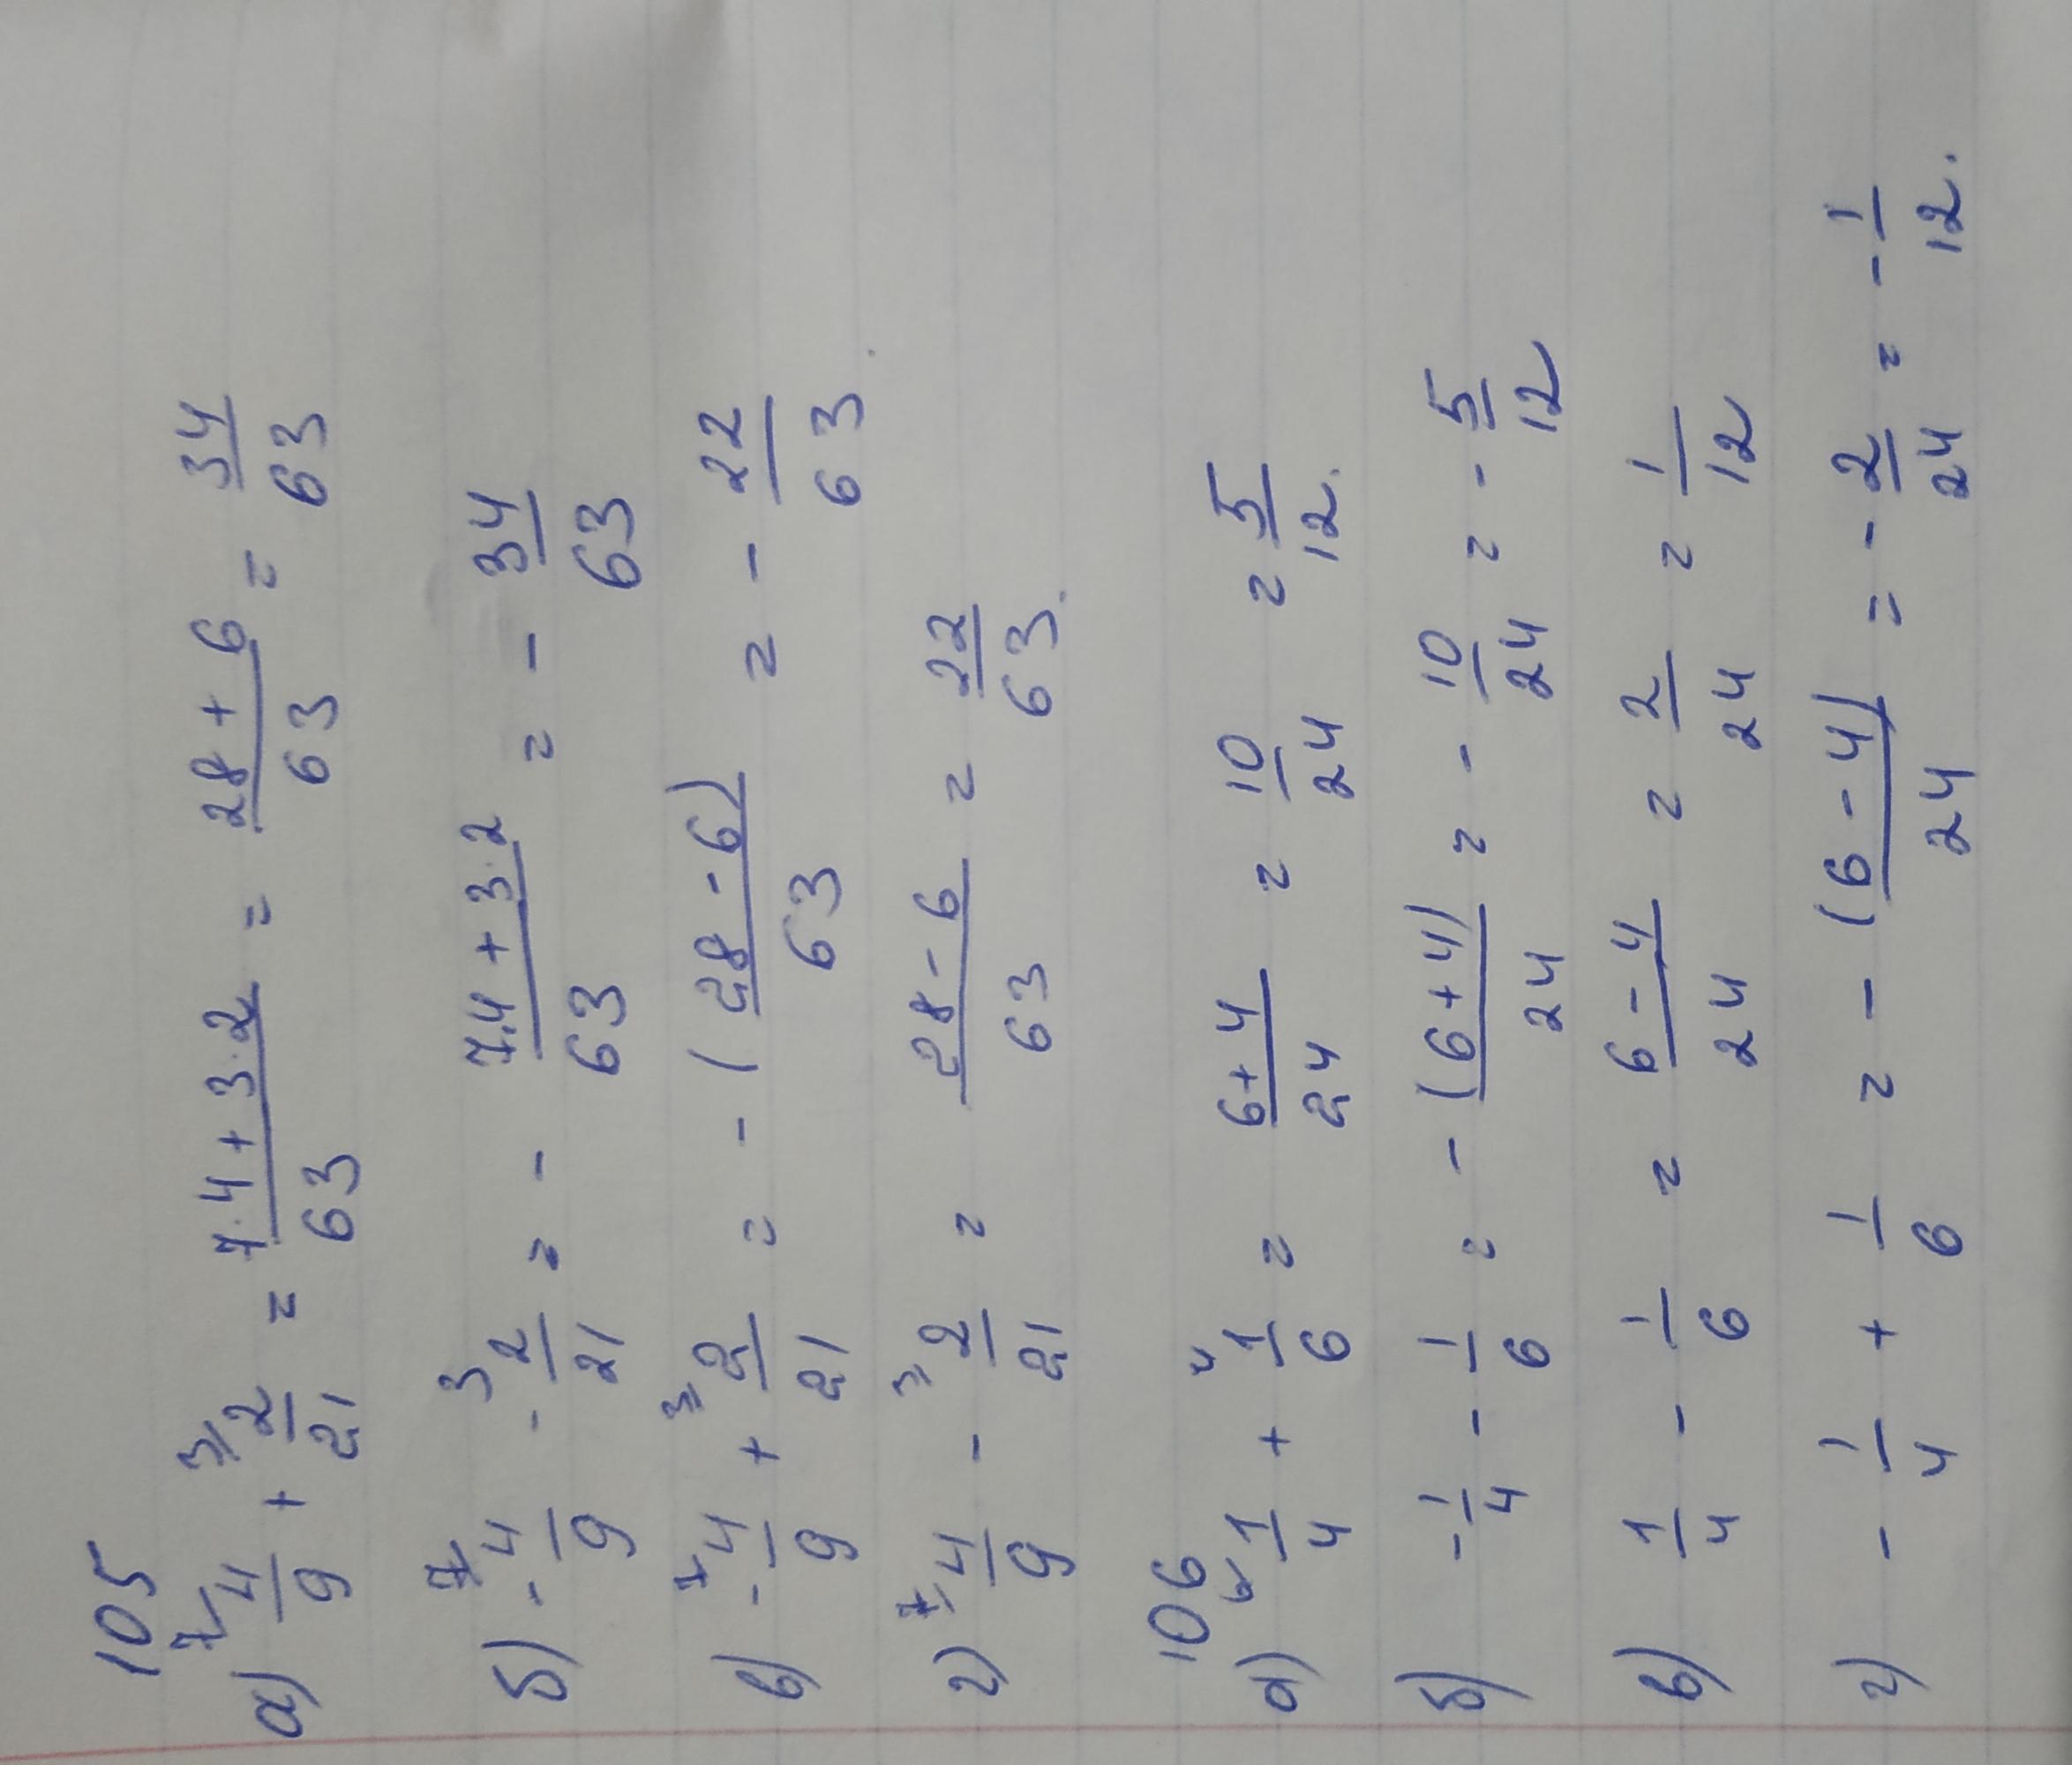 105
а) ⁷⁄ 4/9 + ³⁄ 2/21 = (7·4+3·2)/63 = (28+6)/63 = 34/63
б) - ⁷⁄ 4/9 - ³ 2/21 = - (7·4+3·2)/63 = - 34/63
в) - ⁷⁄ 4/9 + ³⁄ 2/21 = - ((28-6)/63 = - 22/63.
г) ⁷⁄ 4/9 - ³⁄ 2/21 = (28-6)/63 = 22/63.
106
а) ⁶ 1/4 + ⁴ 1/6 = (6+4)/24 = 10/24 = 5/12.
б) - 1/4 - 1/6 = - (6+4)/24 = - 10/24 = - 5/12
в) 1/4 - 1/6 = (6-4)/24 = 2/24 = 1/12
г) - 1/4 + 1/6 = - (6-4)/24 = - 2/24 = - 1/12.